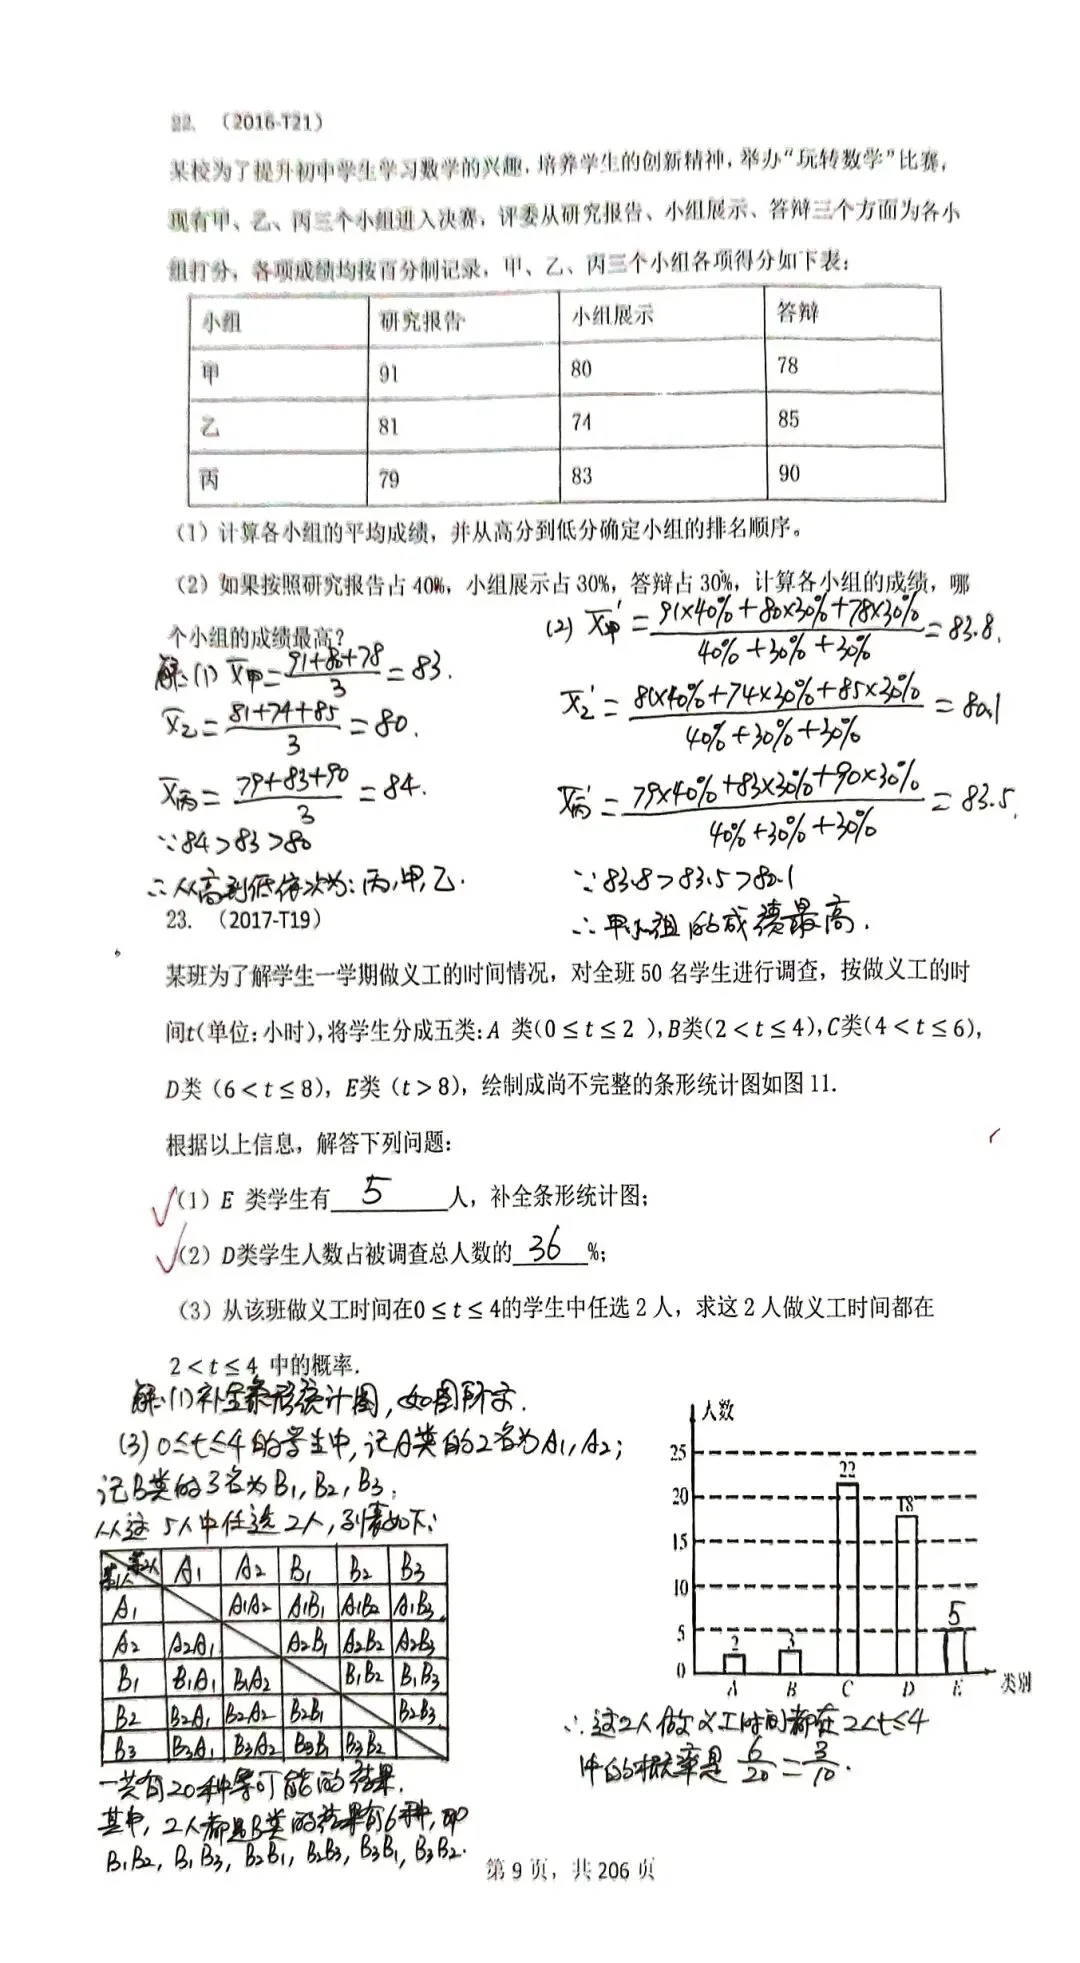 22. （2016-T21）
某校为了提升初中学生学习数学的兴趣，培养学生的创新精神，举办“玩转数学”比赛，
现有甲、乙、丙三个小组进入决赛，评委从研究报告、小组展示、答辩三个方面为各小
组打分，各项成绩均按百分制记录，甲、乙、丙三个小组各项得分如下表：
小组 研究报告 小组展示 答辩
甲 91 80 78
乙 81 74 85
丙 79 83 90
（1）计算各小组的平均成绩，并从高分到低分确定小组的排名顺序。
（2）如果按照研究报告占 40%，小组展示占 30%，答辩占 30%，计算各小组的成绩，哪
个小组的成绩最高？
解：(1) x̄甲=(91+80+78)/3=83.
x̄乙=(81+74+85)/3=80.
x̄丙=(79+83+90)/3=84.
∵84>83>80
∴从高到低依次为：丙,甲,乙.
(2) x̄甲'=(91×40%+80×30%+78×30%)/(40%+30%+30%)=83.8.
x̄乙'=(81×40%+74×30%+85×30%)/(40%+30%+30%)=80.1
x̄丙'=(79×40%+83×30%+90×30%)/(40%+30%+30%)=83.5.
∵83.8>83.5>80.1
∴甲小组的成绩最高.
23. （2017-T19）
某班为了解学生一学期做义工的时间情况，对全班 50 名学生进行调查，按做义工的时
间t(单位：小时),将学生分成五类: A 类(0≤t≤2 ),B类(2<t≤4),C类(4<t≤6),
D类（6<t≤8），E类（t>8），绘制成尚不完整的条形统计图如图 11.
根据以上信息，解答下列问题：
（1）E 类学生有 5 人，补全条形统计图；
（2）D类学生人数占被调查总人数的 36 %；
（3）从该班做义工时间在0≤t≤4的学生中任选 2 人，求这 2 人做义工时间都在
2<t≤4 中的概率.
解：(1)补全条形统计图,如图所示.
(3) 0≤t≤4的学生中,记A类的2名为A1,A2;
记B类的3名为B1,B2,B3;
从这5人中任选2人,列表如下:
第1人 第2人 A1 A2 B1 B2 B3
A1 A1A2 A1B1 A1B2 A1B3
A2 A2A1 A2B1 A2B2 A2B3
B1 B1A1 B1A2 B1B2 B1B3
B2 B2A1 B2A2 B2B1 B2B3
B3 B3A1 B3A2 B3B1 B3B2
一共有20种等可能的结果.
其中,2人都是B类的结果有6种,即
B1B2, B1B3, B2B1, B2B3, B3B1, B3B2.
人数
25
20
15
10
5
0
2 3 22 18 5
A B C D E 类别
∴这2人做义工时间都在2<t≤4
中的概率是 6/20=3/10.
第 9 页，共 206 页